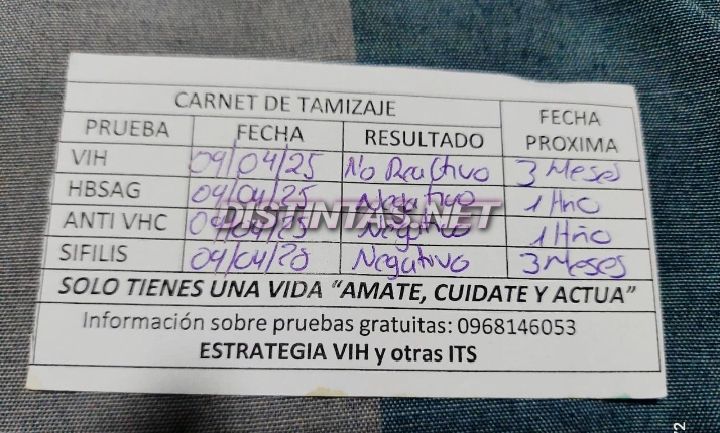 CARNET DE TAMIZAJE FECHA PROXIMA
PRUEBA FECHA RESULTADO
VIH 09/04/25 No Reactivo 3 Meses
HBSAG 09/04/25 Negativo 1 Año
ANTI VHC 09/04/25 Negativo 1 Año
DISTINTAS.NET
SIFILIS 09/04/25 Negativo 3 Meses
SOLO TIENES UNA VIDA “AMATE, CUIDATE Y ACTUA”
Información sobre pruebas gratuitas: 0968146053
ESTRATEGIA VIH y otras ITS